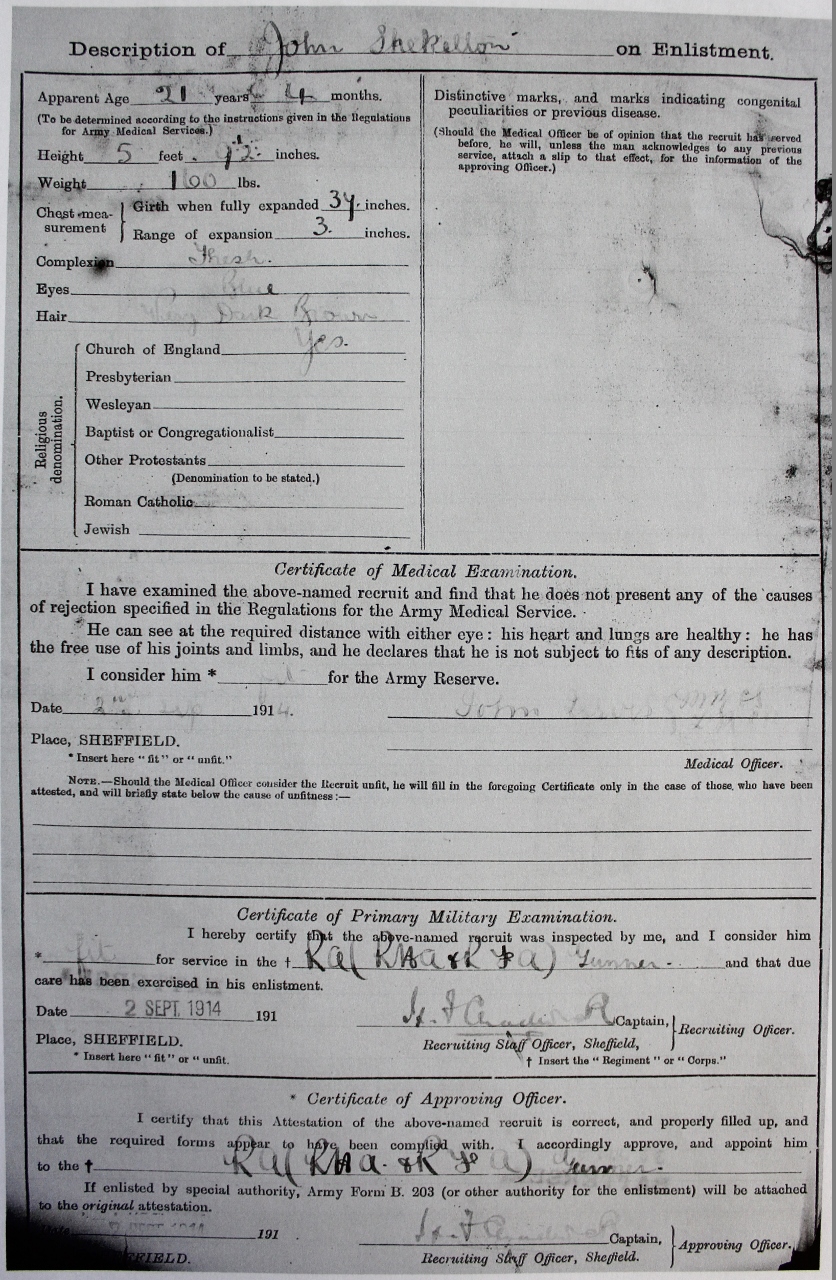 Description of John Shekelton on Enlistment.
Apparent Age 21 years 4 months.
(To be determined according to the instructions given in the Regulations
for Army Medical Services.)
Height 5 feet inches.
Weight lbs.
Chest mea-
surement
Girth when fully expanded 34 inches.
Range of expansion 3 inches.
Complexion Fresh.
Eyes Blue
Hair Very Dark Brown
Religious denomination.
Church of England Yes.
Presbyterian
Wesleyan
Baptist or Congregationalist
Other Protestants
(Denomination to be stated.)
Roman Catholic
Jewish
Distinctive marks, and marks indicating congenital
peculiarities or previous disease.
(Should the Medical Officer be of opinion that the recruit has served
before, he will, unless the man acknowledges to any previous
service, attach a slip to that effect, for the information of the
approving Officer.)
Certificate of Medical Examination.
I have examined the above-named recruit and find that he does not present any of the causes
of rejection specified in the Regulations for the Army Medical Service.
He can see at the required distance with either eye: his heart and lungs are healthy: he has
the free use of his joints and limbs, and he declares that he is not subject to fits of any description.
I consider him * for the Army Reserve.
Date 2nd Sep 1914.
John
Place, SHEFFIELD.
* Insert here "fit" or "unfit."
Medical Officer.
NOTE.—Should the Medical Officer consider the Recruit unfit, he will fill in the foregoing Certificate only in the case of those who have been
attested, and will briefly state below the cause of unfitness:—
Certificate of Primary Military Examination.
I hereby certify that the above-named recruit was inspected by me, and I consider him
* fit for service in the † RA (RHA & RFA) Gunner and that due
care has been exercised in his enlistment.
Date 2 SEPT. 1914 191
Captain,
Recruiting Officer.
Place, SHEFFIELD.
Recruiting Staff Officer, Sheffield,
* Insert here "fit" or "unfit.
† Insert the "Regiment" or "Corps."
* Certificate of Approving Officer.
I certify that this Attestation of the above-named recruit is correct, and properly filled up, and
that the required forms appear to have been complied with. I accordingly approve, and appoint him
to the † RA (RHA. & RFA) Gunner.
If enlisted by special authority, Army Form B. 203 (or other authority for the enlistment) will be attached
to the original attestation.
Date 2 SEPT 1914 191
Captain,
Approving Officer.
SHEFFIELD.
Recruiting Staff Officer, Sheffield.